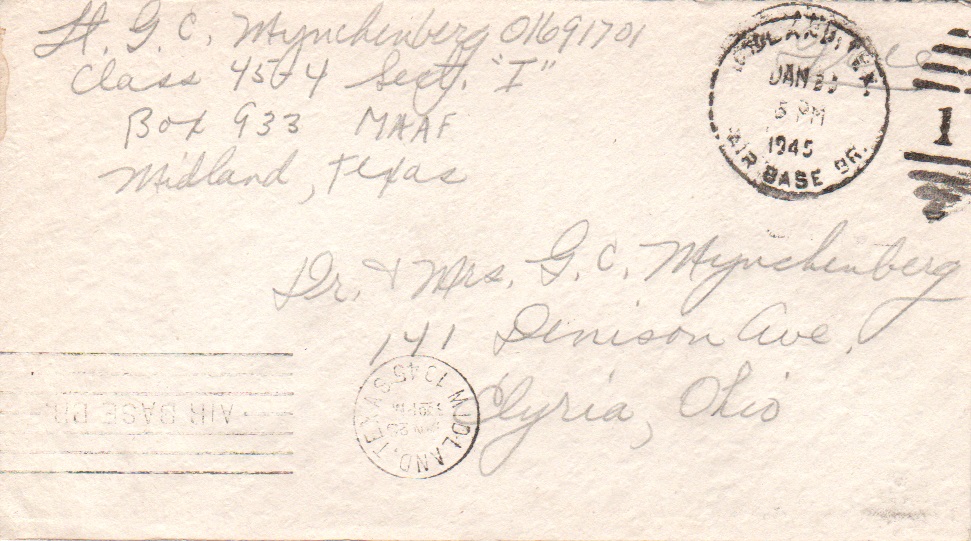 Lt. G. C. Mynchenberg O1691701
Class 45-4 Sect. "I"
Box 933 MAAF
Midland, Texas
MIDLAND, TEX.
JAN
5 PM
1945
AIR BASE BR.
1
Dr. & Mrs. G. C. Mynchenberg
141 Denison Ave.
Elyria, Ohio
MIDLAND, TEXAS
1945
AIR BASE BR.